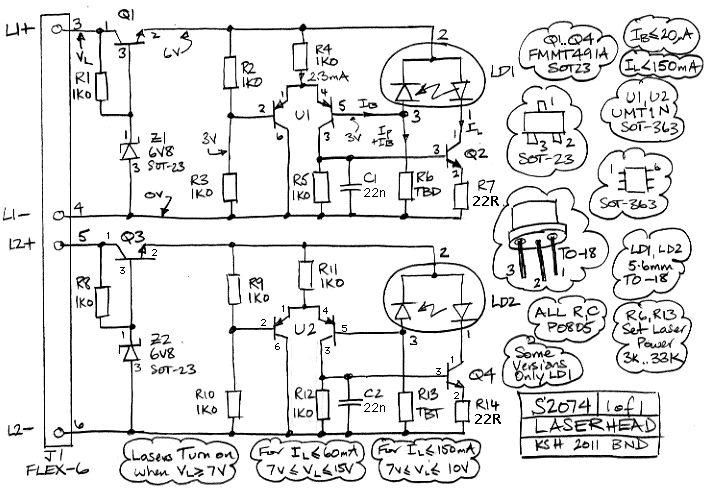 L1+
3
VL
Q1
1
2
3
6V
R1
1K0
Z1
6V8
SOT-23
1
3
0V
R2
1K0
3V
R3
1K0
R4
1K0
2.3mA
1
4
2
U1
5
6
3
IB
3V
IP
+IB
R5
1K0
C1
22n
R6
TBD
2
LD1
3
1
IL
3
1
Q2
2
R7
22R
L1-
4
L2+
5
1
Q3
2
3
R8
1K0
Z2
6V8
SOT-23
1
3
R9
1K0
R10
1K0
R11
1K0
1
4
2
U2
5
6
3
R12
1K0
C2
22n
R13
TBT
2
LD2
3
1
3
1
Q4
2
R14
22R
L2-
6
J1
FLEX-6
Lasers Turn on
when VL≥7V
For IL≤60mA
7V≤VL≤15V
For IL≤150mA
7V≤VL≤10V
Q1..Q4
FMMT491A
SOT23
IB≤20µA
IL≤150mA
U1, U2
UMT1N
SOT-363
1
3
2
SOT-23
1
6
SOT-363
3
2
1
TO-18
LD1, LD2
5.6mm
TO-18
ALL R,C
P0805
R6, R13
Set Laser
Power
3K..33K
Some
Versions
Only LD1
S2074
1 of 1
LASERHEAD
KSH 2011 BND